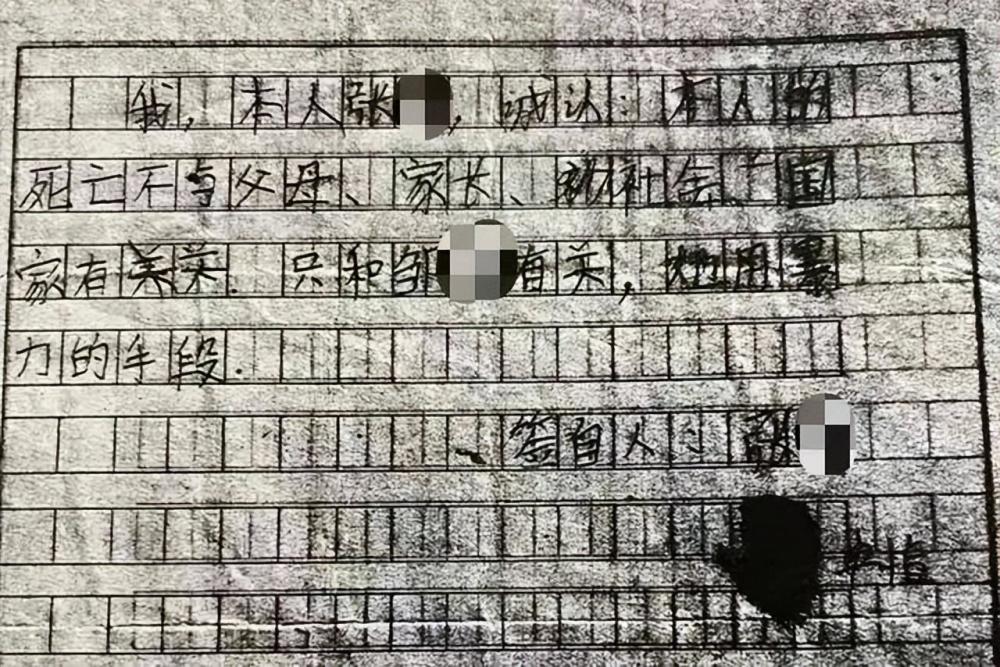 我,本人张,诚认:本人的
死亡不与父母、家长、社会、国
家有关关.只和邹有关,她用暴
力的手段.
签自人:张